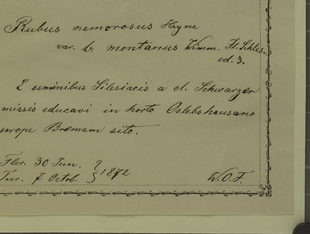 Rubus nemorosus Hayne
var. b. montanus Wimm. Fl. Schles.
ed. 3.
E seminibus Silesiacis a cl. Schwarzer
missis educavi in horto Oslebshausano
prope Bremam sito.
Flor. 30 Jun. }
Fur. 7 Octob. } 1872
W.O.F.